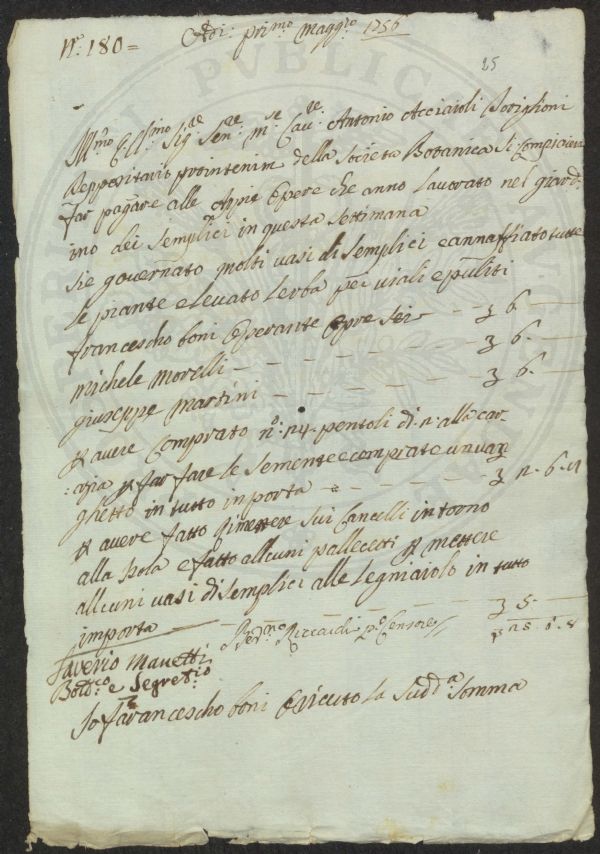 N.º 180 =
Adi: prim.º Maggio 1756
25
Ill.mo Ecc.mo Sig.re Sen.re M.se Cav.re Antonio Acciaioli
Reppositario della Societa Botanica Si Compiacia
far pagare alle Opere che anno lavorato nel giard:
ino dei Semplici in questa Settimana
Sie governato molti vasi di Semplici e annaffiato tutte
le piante e levato lerba per viali e puliti
francescho boni Operante Opre Sei — 3 6. —
michele morelli — 3 6. —
giuseppe martini — 3 6. —
avere Comprato n.º: 24. pentoli di alla
far fare le Semente e comprato un van
ghetto in tutto inporta — 3
avere fatto Rimettere Sui Cancelli intorno
alla Isola e fatto allcuni pallecetti mettere
allcuni vasi di Semplici alle Legniaiolo in tutto
importa — 3 5. —
Saverio Manetti
Ricciardi Censore
Bot.co e Segret.io
Io francescho boni O riceuto la Sudd.a Somma